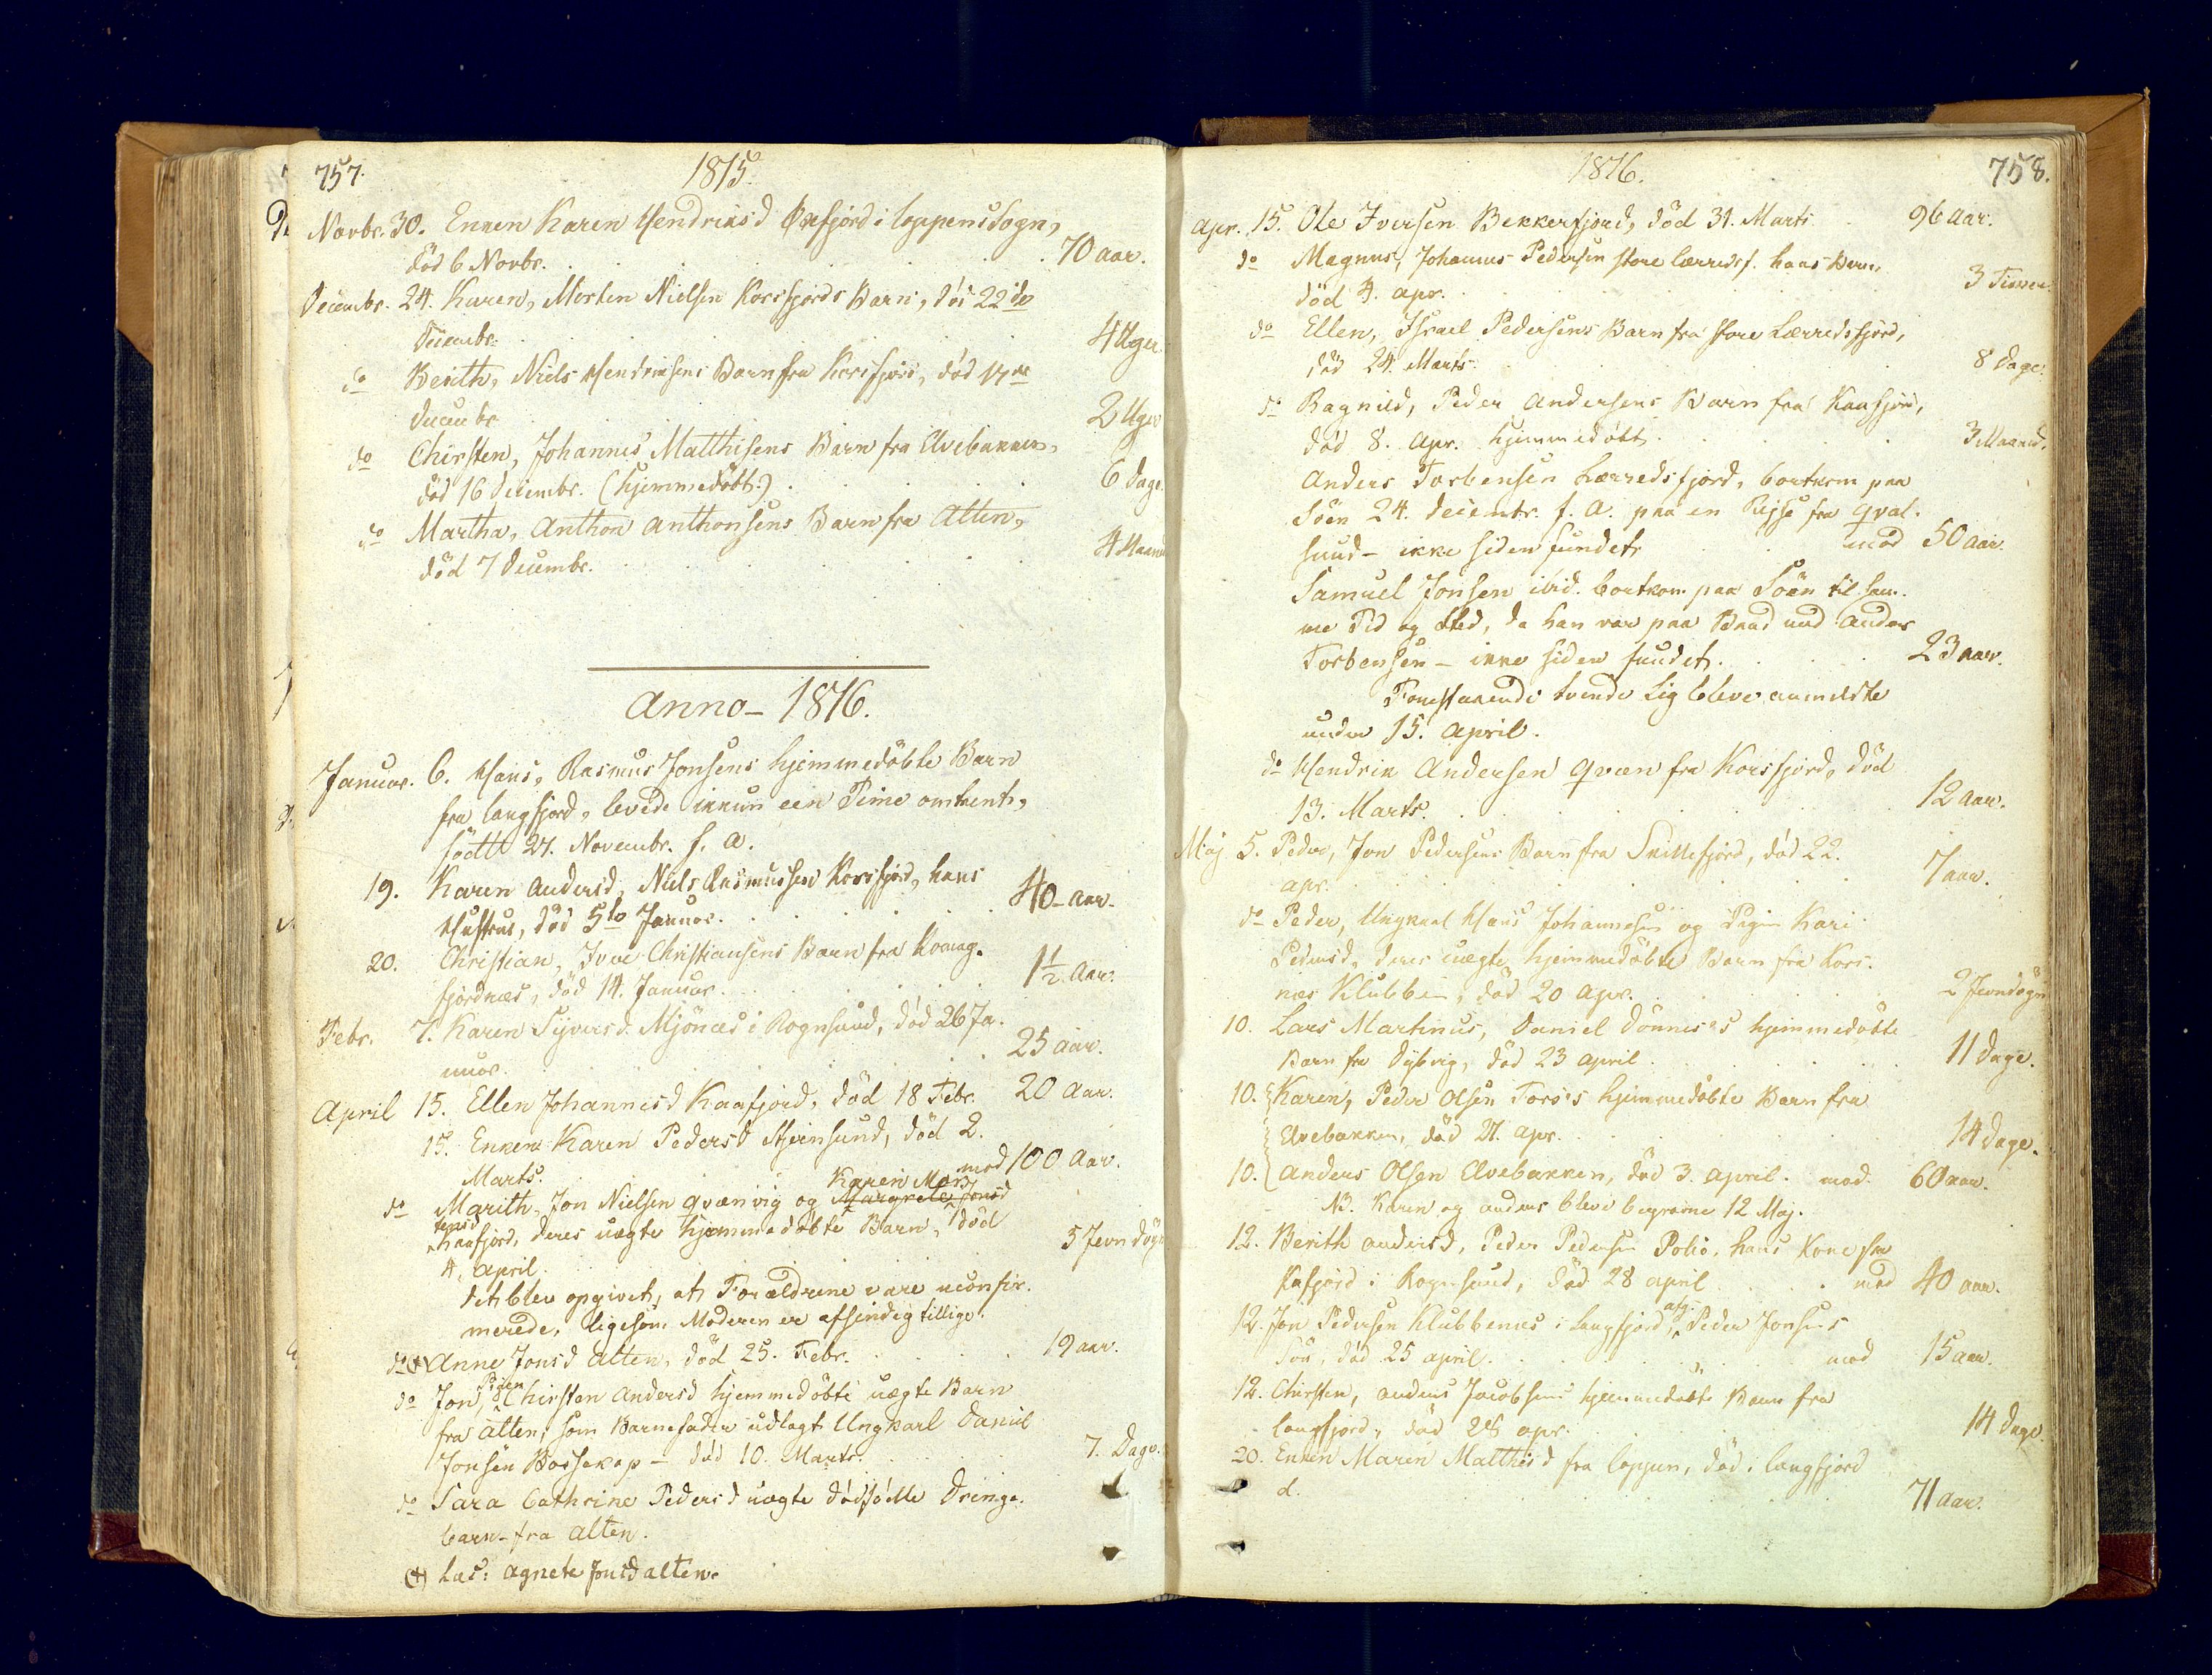 757.
1815.
Novbr. 30. Enken Karen Hendriksd Øxfjord i Loppens Sogn,
död 6 Novbr. 70 aar.
Decembr. 24. Karen, Morten Nielsen Korsfjords Barn, död 22de
Decembr. 4 Uger.
do Berith, Niels Hendriksens Barn fra Korsfjord, död 17de
Decembr. 2 Uger
do Chirsten, Johannes Matthisens Barn fra Elvebakken,
död 16 Decembr. (hjemmedöbt.) 6 Dage.
do Martha, Anthon Anthonsens Barn fra Alten,
död 7 Decembr. 4 Maan
Anno - 1816.
Januar. 6. Hans, Rasmus Jonsens hjemmedöbte Barn
fra Langfjord, levede ikkun een Time omtrent,
födt 27. Novembr. f. A.
19. Karen Andersd, Niels Rasmussens Korsfjord, hans
Hustrue, död 5te Januar. 40 aar.
20. Christian, Iver Christiansens Barn fra Komag-
fjordnæs, död 14. Januar. 1½ Aar.
Febr. 7. Karen Syversd. Mjönæs i Rognsund, död 26 Ja-
nuar. 25 aar.
April 15. Ellen Johannesd Kaafjord, död 18 Febr. 20 Aar.
15. Enken Karen Pedersd Stjernsund, död 2.
Marts. mod 100 Aar.
Karen Mor-
do Marith, Jon Nielsen Qvænvig og Margrete Jonsd
tensd
Kaafjord, deres uægte hjemmedöbte Barn, död
4. April. 5 Jevndögn
det blev opgivet, at Forældrene vare uconfir-
merede, ligesom Moderen er afsindig tillige.
do (+) Anne Jonsd Alten, död 25. Febr. 19 aar.
do Jon, Pigen Chirsten Andersd hjemmedöbte uægte Barn
fra Alten, som Barnefader udlagt Ungkarl Daniel
Jonsen Bossekop - död 10. Marts. 7. Dage.
do Sara Cathrine Pedersd uægte dödfödte Drenge-
barn - fra Alten.
(+) læs: Agnete Jonsd Alten.
1816.
758.
Apr. 15. Ole Iversen Bekkerfjord, död 31. Marts 96 Aar.
do Magnus, Johannes Pedersen store Lerredsf. hans Barn,
död 4. Apr. 3 Timer.
do Ellen, Israel Pedersens Barn fra store Lerredsfjord,
död 24. Marts. 8 Dage.
do Bagnild, Peder Andersens Barn fra Kaafjord,
död 8. Apr. hjemmedöbt. 3 Maaned.
Anders Torbensen Lerredsfjord, bortkom paa
Söen 24. Decembr. f. A. paa en Rejse fra Qval-
sund - ikke siden fundet. mod 50 aar.
Samuel Jonsen ibid. bortkom paa Söen til sam-
me Tid og Sted, da han var paa Baad med Anders
Torbensen - ikke siden fundet. 23 aar.
Forestaaende tvende Lig bleve anmeldte
under 15. April.
do Hendrik Andersen Qvæn fra Korsfjord, död
13. Marts. 12 aar.
Maj 5. Peder, Jon Pedersens Barn fra Skillefjord, död 22.
apr. 7 aar.
do Peder, Ungkarl Hans Johannesen og Pigen Kari
Pedersd, deres uægte hjemmedöbte Barn fra Kors-
næs Klubben, död 20 Apr. 2 Jevndögn
10. Lars Martinus, Daniel Dönnes's hjemmedöbte
Barn fra Dybvig, död 23 April 11 Dage.
10. Karen, Peder Olsen Torö's hjemmedöbte Barn fra
Elvebakken, död 27. apr. 14 Dage.
10. Anders Olsen Elvebakken, död 3. April. mod. 60 aar.
NB. Karen og Anders bleve begravne 12 Maj.
12. Berith Andersd, Peder Pedersen Polio, hans Kone fra
Kafjord i Rognsund, död 28 April mod 40 aar.
12. Jon Pedersen Klubbenæs i Langfjord, afg. Peder Jonsens
Sön, död 25 April. mod 15 aar.
12. Chirsten, Anders Jacobsens hjemmedöbte Barn fra
Langfjord, död 28 apr. 14 Dage.
20. Enken Maren Matthisd fra Loppen, död i Langfjord
d. 71 Aar.